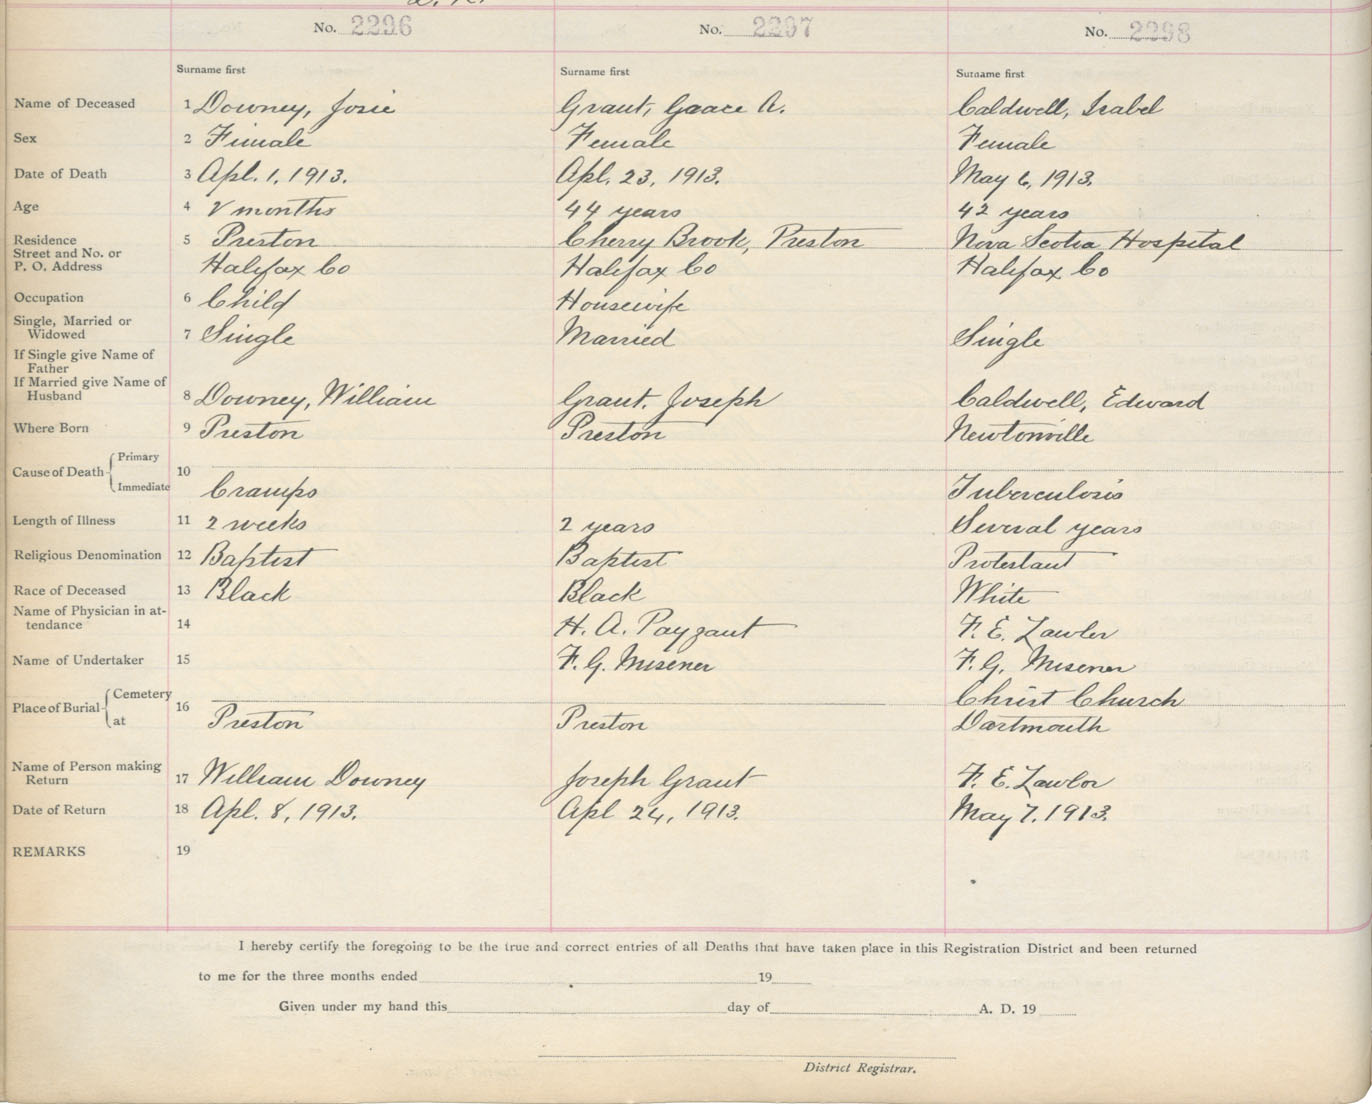 No. 2296 No. 2297 No. 2298
Surname first Surname first Surname first
Name of Deceased 1 Downey, Josie Grant, Grace A. Caldwell, Isabel
Sex 2 Female Female Female
Date of Death 3 Apl. 1, 1913. Apl. 23, 1913. May 6, 1913.
Age 4 2 months 44 years 42 years
Residence 5 Preston Cherry Brook, Preston Nova Scotia Hospital
Street and No. or
P. O. Address Halifax Co Halifax Co Halifax Co
Occupation 6 Child Housewife
Single, Married or
Widowed 7 Single Married Single
If Single give Name of
Father
If Married give Name of
Husband 8 Downey, William Grant. Joseph Caldwell, Edward
Where Born 9 Preston Preston Newtonville
Primary
Cause of Death 10
Immediate Cramps Tuberculosis
Length of Illness 11 2 weeks 2 years Several years
Religious Denomination 12 Baptist Baptist Protestant
Race of Deceased 13 Black Black White
Name of Physician in at-
tendance 14 H. A. Payzant F. E. Lawlor
Name of Undertaker 15 F. G. Misener F. G. Misener
Cemetery Christ Church
Place of Burial 16
at Preston Preston Dartmouth
Name of Person making
Return 17 William Downey Joseph Grant F. E. Lawlor
Date of Return 18 Apl. 8, 1913. Apl 24, 1913. May 7, 1913.
REMARKS 19
I hereby certify the foregoing to be the true and correct entries of all Deaths that have taken place in this Registration District and been returned
to me for the three months ended 19
Given under my hand this day of A. D. 19
District Registrar.